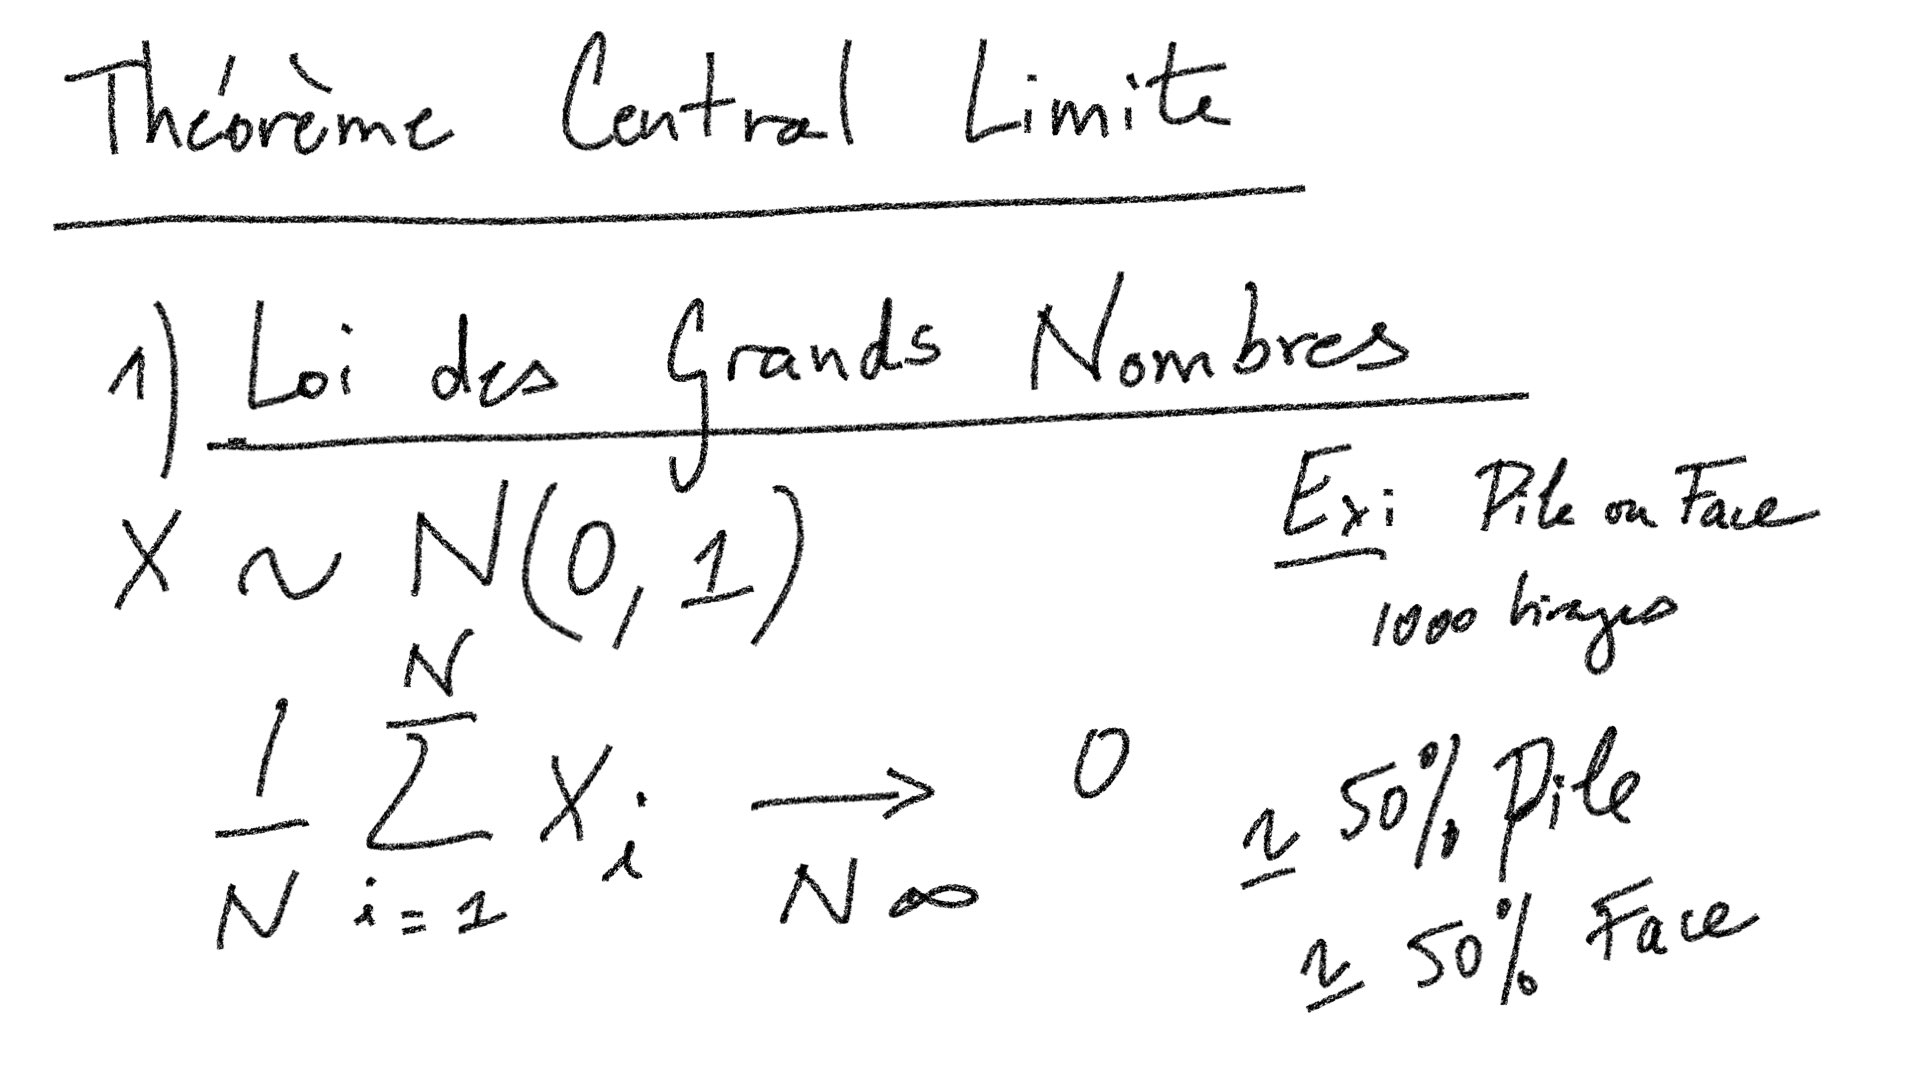 Théorème Central Limite
1) Loi des Grands Nombres
X ~ N(0, 1)
1/N ∑_{i=1}^{N} X_i ⟶_{N ∞} 0
Ex: Pile ou Face
1000 tirages
≃ 50% Pile
≃ 50% Face